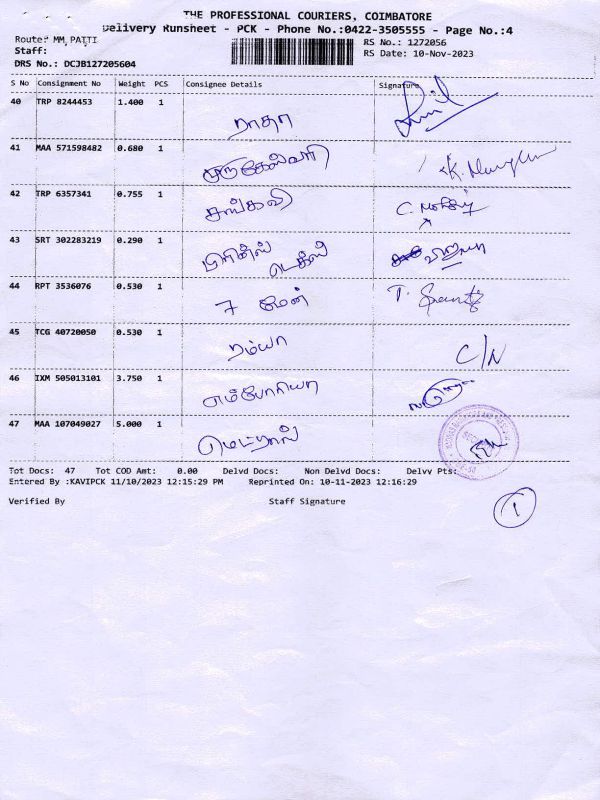 THE PROFESSIONAL COURIERS, COIMBATORE
Delivery Runsheet - PCK - Phone No.:0422-3505555 - Page No.:4
Route: MM,PATTI
RS No.: 1272056
Staff:
RS Date: 10-Nov-2023
DRS No.: DCJB127205604
S No Consignment No Weight PCS Consignee Details Signature
40 TRP 8244453 1.400 1 ராதா
41 MAA 571598482 0.680 1 முருகேஸ்வரி
42 TRP 6357341 0.755 1 சங்கவி
43 SRT 302283219 0.290 1 பிரின்ஸ் டெக்ஸ்
44 RPT 3536076 0.530 1 7 மேன்
45 TCG 40720050 0.530 1 ரம்யா C/N
46 IXM 505013101 3.750 1 எம்போரியா
47 MAA 107049027 5.000 1 மெட்ராஸ்
Tot Docs: 47 Tot COD Amt: 0.00 Delvd Docs: Non Delvd Docs: Delvy Pts:
Entered By :KAVIPCK 11/10/2023 12:15:29 PM Reprinted On: 10-11-2023 12:16:29
Verified By Staff Signature
1